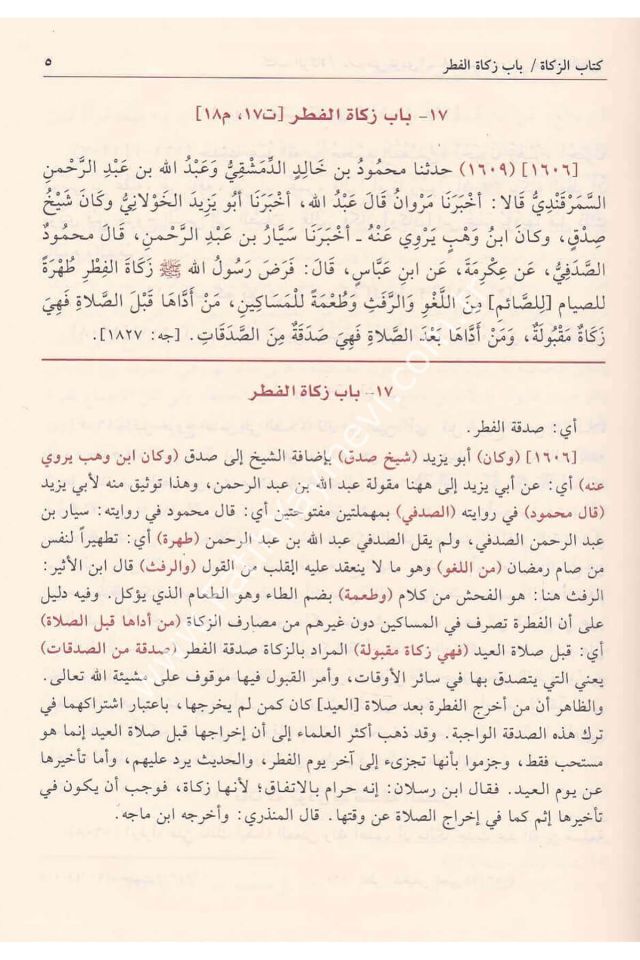 كتاب الزكاة / باب زكاة الفطر ٥
١٧- باب زكاة الفطر [ت١٧، م١٨]
[١٦٠٦] (١٦٠٩) حدثنا محمُودُ بن خَالِدٍ الدِّمَشْقِيُّ وَعَبْدُ الله بن عَبْدِ الرَّحْمنِ
السَّمَرْقَنْدِيُّ قَالا: أخْبَرَنَا مَرْوَانُ قَالَ عَبْدُ الله، أخْبَرَنَا أبُو يَزِيدَ الخَوْلَانِيُّ وَكَانَ شَيْخُ
صِدْقٍ، وكانَ ابنُ وَهْبٍ يَرْوِي عَنْهُ ـ أخْبَرَنَا سَيَّارُ بن عَبْدِ الرَّحْمنِ، قَالَ مَحمُودٌ
الصَّدَفِيُّ، عَن عِكْرِمَةَ، عَن ابنِ عَبَّاسٍ، قَالَ: فَرَضَ رَسُولُ الله ﷺ زَكَاةَ الفِطْرِ طُهْرَةً
للصيام [لِلصَّائمِ] مِنَ اللَّغْوِ وَالرَّفَثِ وَطُعْمَةً لِلْمَسَاكِينِ، مَنْ أدَّاهَا قَبْلَ الصَّلاةِ فَهِيَ
زَكَاةٌ مَقْبُولَةٌ، وَمَنْ أدَّاهَا بَعْدَ الصَّلاةِ فَهِيَ صَدَقَةٌ مِنَ الصَّدَقَاتِ. [جه: ١٨٢٧].
١٧- باب زكاة الفطر
أي: صدقة الفطر.
[١٦٠٦] (وكان) أبو يزيد (شيخ صدق) بإضافة الشيخ إلى صدق (وكان ابن وهب يروي
عنه) أي: عن أبي يزيد إلى ههنا مقولة عبد الله بن عبد الرحمن، وهذا توثيق منه لأبي يزيد
(قال محمود) في روايته (الصدفي) بمهملتين مفتوحتين أي: قال محمود في روايته: سيار بن
عبد الرحمن الصدفي، ولم يقل الصدفي عبد الله بن عبد الرحمن (طهرة) أي: تطهيراً لنفس
من صام رمضان (من اللغو) وهو ما لا ينعقد عليه القلب من القول (والرفث) قال ابن الأثير:
الرفث هنا: هو الفحش من كلام (وطعمة) بضم الطاء وهو الطعام الذي يؤكل. وفيه دليل
على أن الفطرة تصرف في المساكين دون غيرهم من مصارف الزكاة (من أداها قبل الصلاة)
أي: قبل صلاة العيد (فهي زكاة مقبولة) المراد بالزكاة صدقة الفطر (صدقة من الصدقات)
يعني التي يتصدق بها في سائر الأوقات، وأمر القبول فيها موقوف على مشيئة الله تعالى.
والظاهر أن من أخرج الفطرة بعد صلاة [العيد] كان كمن لم يخرجها، باعتبار اشتراكهما في
ترك هذه الصدقة الواجبة. وقد ذهب أكثر العلماء إلى أن إخراجها قبل صلاة العيد إنما هو
مستحب فقط، وجزموا بأنها تجزىء إلى آخر يوم الفطر، والحديث يرد عليهم، وأما تأخيرها
عن يوم العيد. فقال ابن رسلان: إنه حرام بالاتفاق؛ لأنها زكاة، فوجب أن يكون في
تأخيرها إثم كما في إخراج الصلاة عن وقتها. قال المنذري: وأخرجه ابن ماجه.